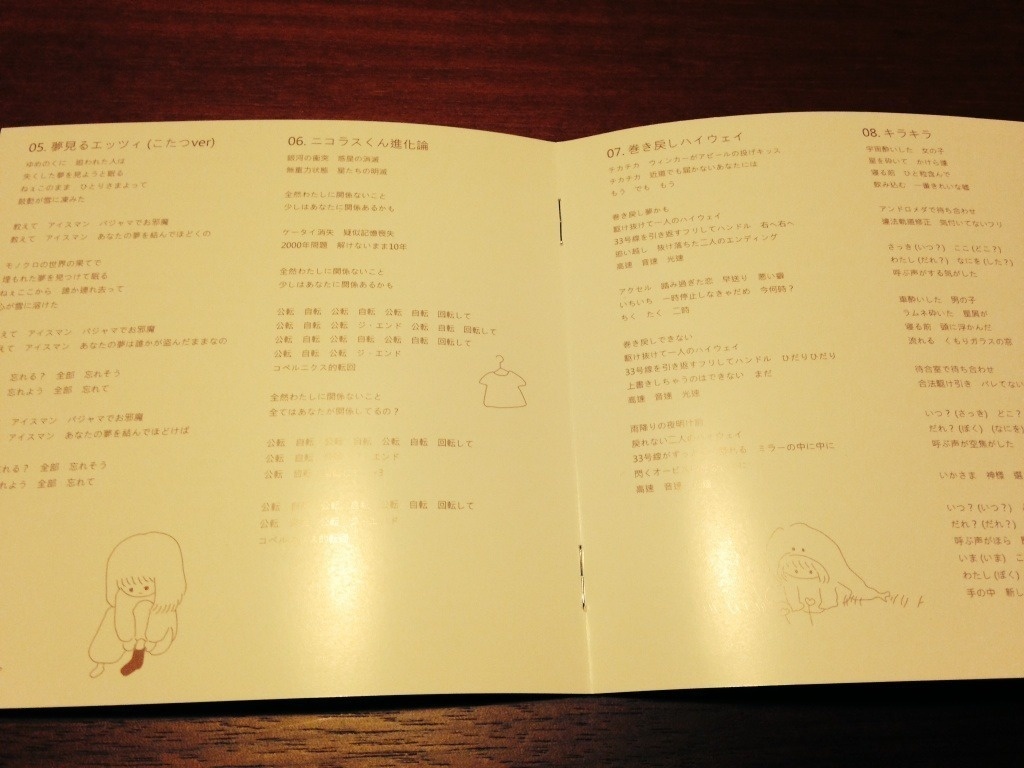 05. 夢見るエッツィ (こたつver)
ゆめのくに 追われた人は
哀くした夢を見ようと眠る
ねぇこのまま ひとりさまよって
鼓動が雪に凍みた
教えて アイスマン パジャマでお邪魔
教えて アイスマン あなたの夢を結んでほどくの
モノクロの世界の果てで
埋もれた夢を見つけて眠る
ねぇここから 誰か連れ去って
心が雪に溶けた
えて アイスマン パジャマでお邪魔
えて アイスマン あなたの夢は誰かが盗んだままなの
忘れる? 全部 忘れそう
忘れよう 全部 忘れて
アイスマン パジャマでお邪魔
アイスマン あなたの夢を結んでほどけば
れる? 全部 忘れそう
れよう 全部 忘れて
06. ニコラスくん進化論
銀河の衝突 惑星の消滅
無重力状態 星たちの明滅
全然わたしに関係ないこと
少しはあなたに関係あるかも
ケータイ消失 疑似記憶喪失
2000年問題 解けないまま10年
全然わたしに関係ないこと
少しはあなたに関係あるかも
公転 自転 公転 自転 公転 自転 回転して
公転 自転 公転 ジ・エンド 公転 自転 回転して
公転 自転 公転 自転 公転 自転 回転して
公転 自転 公転 ジ・エンド
コペルニクス的転回
全然わたしに関係ないこと
全てはあなたが関係してるの?
公転 自転 公転 自転 公転 自転 回転して
公転 エンド 自転 回転して
公転 自転 回転して
公転 自転 回転して
公転
コペル
07. 巻き戻しハイウェイ
チカチカ ウィンカーがアピールの投げキッス
チカチカ 近道でも届かないあなたには
もう でも もう
巻き戻し夢かも
駆け抜けて一人のハイウェイ
33号線を引き返すフリしてハンドル 右へ右へ
追い越し 抜け落ちた二人のエンディング
高速 音速 光速
アクセル 踏み過ぎた恋 早送り 悪い癖
いちいち 一時停止しなきゃだめ 今何時?
ちく たく 二時
巻き戻しできない
駆け抜けて一人のハイウェイ
33号線を引き返すフリしてハンドル ひだりひだり
上書きしちゃうのはできない まだ
高速 音速 光速
雨降りの夜明け前
戻れない二人のハイウェイ
33号線が れる ミラーの中に中に
閃くオービ
高速 音速
08. キラキラ
宇宙酔いした 女の子
星を砕いて かけら薬
寝る前 ひと粒含んで
飲み込む 一番きれいな嘘
アンドロメダで待ち合わせ
違法軌道修正 気付いてないつもり
さっき (いつ?) ここ (どこ?)
わたし (だれ?) なにを (した?)
呼ぶ声がする気がした
車酔いした 男の子
ラムネ砕いた 星屑が
寝る前 頭に浮かんだ
流れる くもりガラスの窓
待合室で待ち合わせ
合法駆け引き バレてない
いつ? (さっき) どこ?
だれ? (ぼく) (なにを)
呼ぶ声が空焦がした
いかさま 神様
いつ? (いつ?)
だれ? (だれ?)
呼ぶ声がほら
いま (いま) こ
わたし (ぼく)
手の中 新し